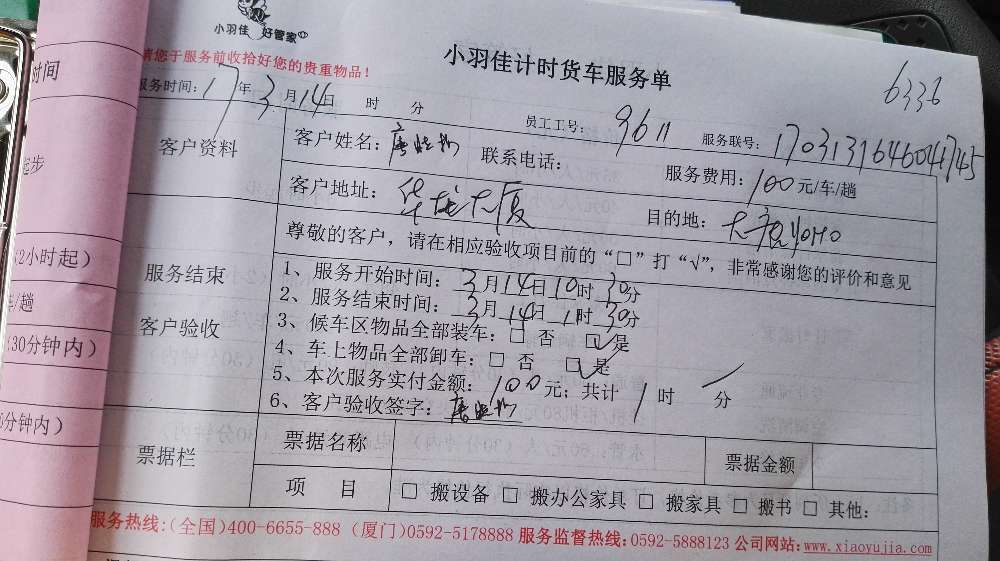 小羽佳 好管家
小羽佳计时货车服务单
6336
请您于服务前收拾好您的贵重物品！
服务时间：17年3月14日 时 分 员工工号：9611 服务联号：
客户资料
客户姓名： 联系电话： 服务费用：100元/车/趟
客户地址：华龙大厦 目的地：
服务结束
客户验收
尊敬的客户，请在相应验收项目前的“□”打“√”，非常感谢您的评价和意见
1、服务开始时间：3月14日10时30分
2、服务结束时间：3月14日1时30分
3、候车区物品全部装车：□ 否 ☑是
4、车上物品全部卸车：□ 否 ☑是
5、本次服务实付金额：100元；共计1时 分
6、客户验收签字：
票据栏
票据名称 票据金额
项 目 □ 搬设备 □ 搬办公家具 □ 搬家具 □ 搬书 □ 其他：
服务热线：(全国)400-6655-888 (厦门)0592-5178888 服务监督热线：0592-5888123 公司网站：www.xiaoyujia.com
时间
起步
(2小时起)
车/趟
30分钟内)
分钟内)